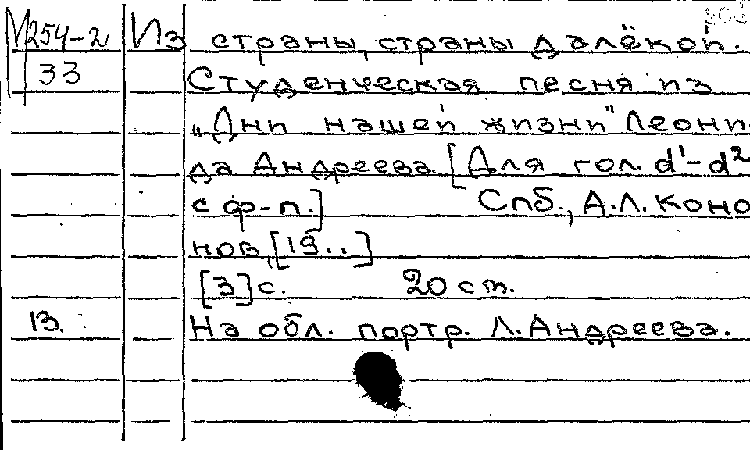 М254-2 Из страны, страны далёкой.
33 Студенческая песня из
„Дни нашей жизни" Леони-
да Андреева [Для гол. d¹-d²
с ф-п.] Спб., А.Л. Коно
нов, [19..]
[3] с. 20 см.
13. На обл. портр. Л. Андреева.